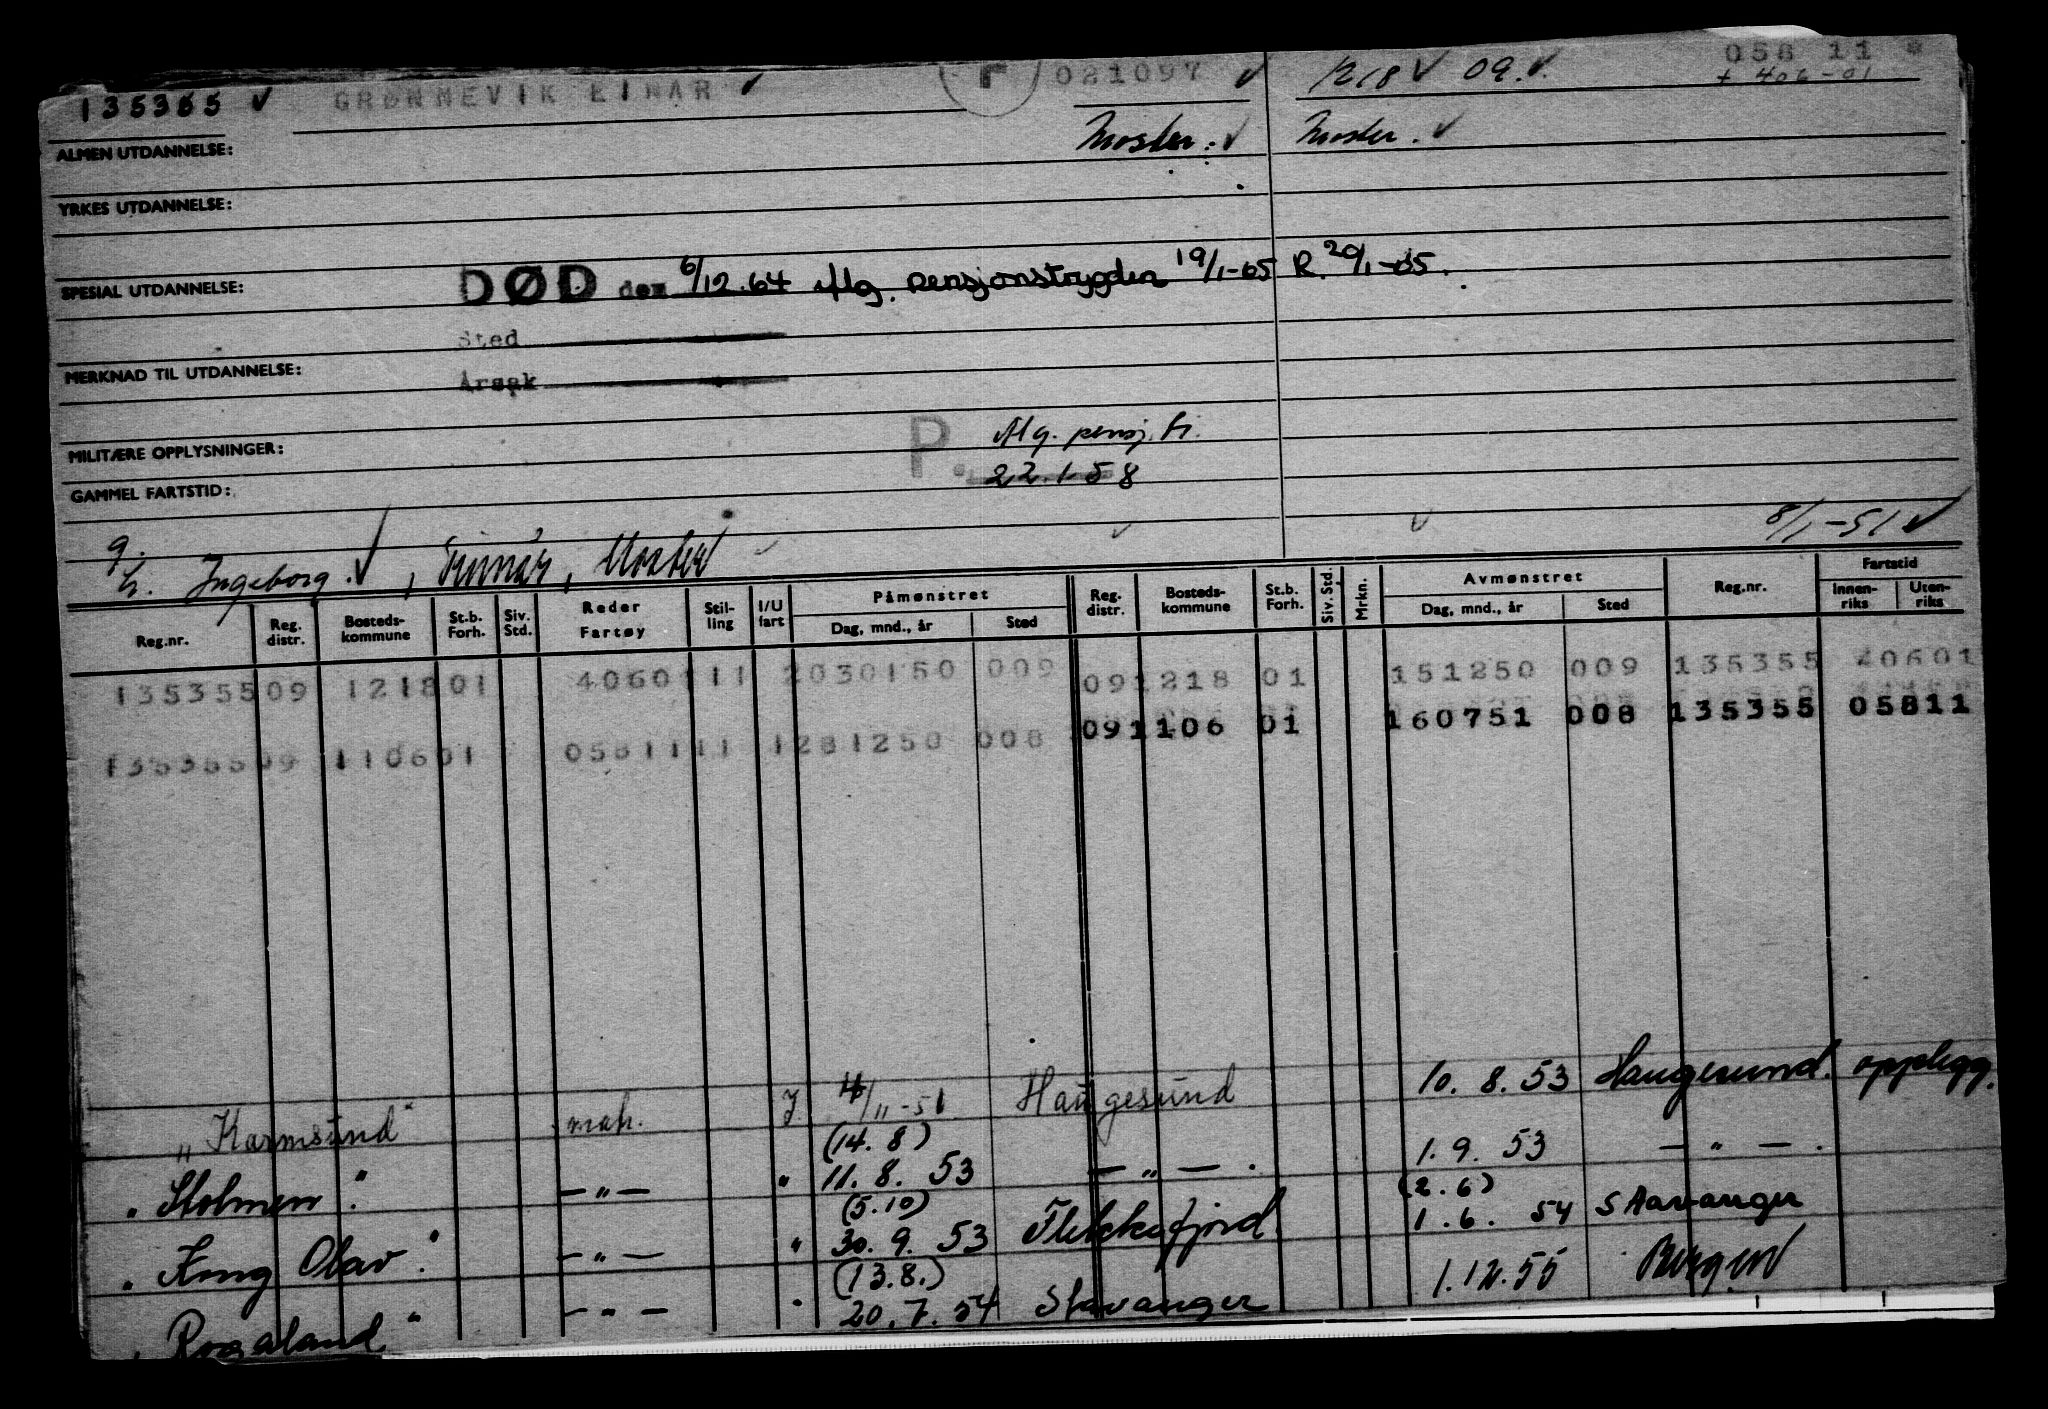 135355 ✓ GRØNNEVIK EINAR ✓ F 021097 ✓ 1218 ✓ 09. ✓ 058 11 *
+ 406-01
ALMEN UTDANNELSE: Moster. ✓ Moster. ✓
YRKES UTDANNELSE:
SPESIAL UTDANNELSE: DØD den 6/12.64 iflg. pensjonstrygden 19/1-65 R. 20/1-65.
Sted
MERKNAD TIL UTDANNELSE: Årsak
MILITÆRE OPPLYSNINGER: P. iflg. pensj. tr.
GAMMEL FARTSTID: 22.1.58
8/1-51 ✓
g. h. Ingeborg ✓,
Reg.nr. Reg. distr. Bosteds-kommune St.b. Forh. Siv. Std. Reder Fartøy Stil-ling I/U fart Påmønstret Dag, mnd., år Sted Reg. distr. Bosteds-kommune St.b. Forh. Siv. Std. Mrkn. Avmønstret Dag, mnd., år Sted Reg.nr. Fartstid Innen-riks Uten-riks
135355 09 1218 01 40601 11 2 030150 009 09 1218 01 151250 009 135355 40601
135355 09 1106 01 05811 11 1 281250 008 09 1106 01 160751 008 135355 05811
"Karmsund" mah. J /11-51 Haugesund 10. 8. 53 Haugesund. opplegg.
(14. 8)
"Stolmen" — " — " 11. 8. 53 — " — . 1. 9. 53 — " — .
(5.10) (2.6)
"Kong Olav". — " — " 30. 9. 53 Flekkefjord. 1. 6. 54 Stavanger
(13.8.)
"Rogaland" — " — " 20. 7. 54 Stavanger 1.12.55 Bergen